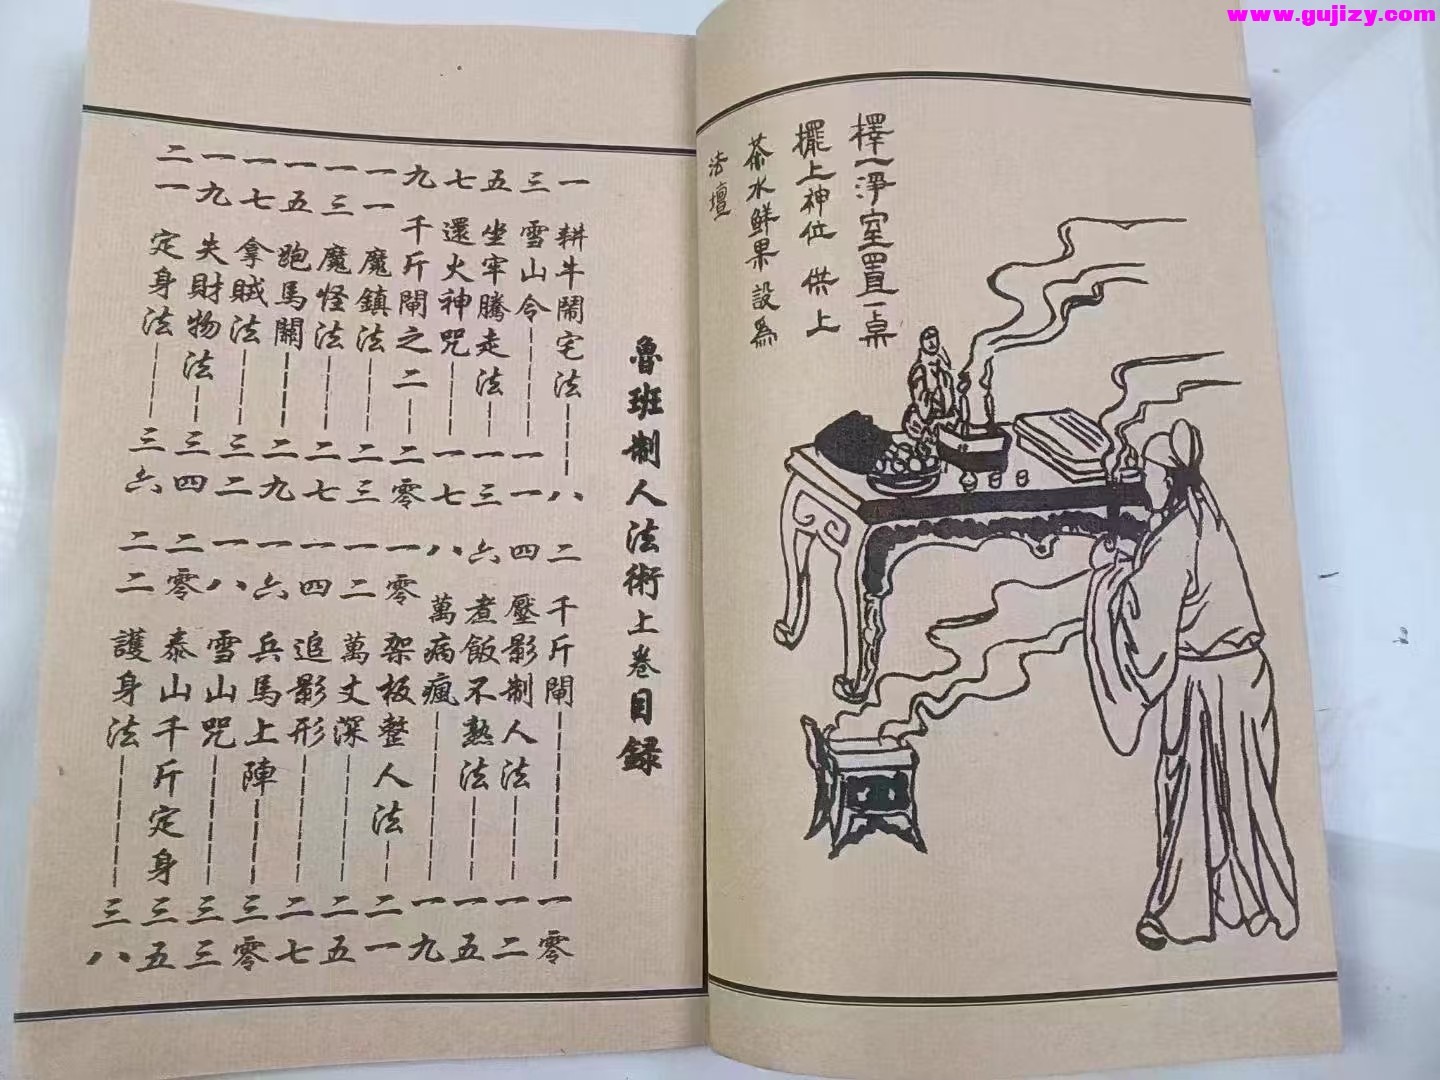 www.gujizy.com
擇一淨室置一桌
擺上神位 供上
茶水鮮果設為
法壇
魯班制人法術上卷目録
一 耕牛鬧宅法 八
二 千斤閘 一零
三 雪山令 一一
四 壓影制人法 一二
五 坐牢騰走法 一三
六 煮飯不熟法 一五
七 還火神咒 一七
八 萬病瘋 一九
九 千斤閘之二 二零
一零 架板整人法 二一
一一 魔鎮法 二三
一二 萬丈深 二五
一三 魔怪法 二七
一四 追影形 二七
一五 跑馬關 二九
一六 兵馬上陣 三零
一七 拿賊法 三二
一八 雪山咒 三三
一九 失財物法 三四
二零 泰山千斤定身 三五
二一 定身法 三六
二二 護身法 三八